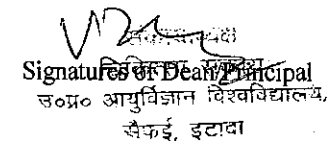 संकायाध्यक्ष
Signatures of Dean/Principal
उ०प्र० आयुर्विज्ञान विश्वविद्यालय,
सैफई, इटावा